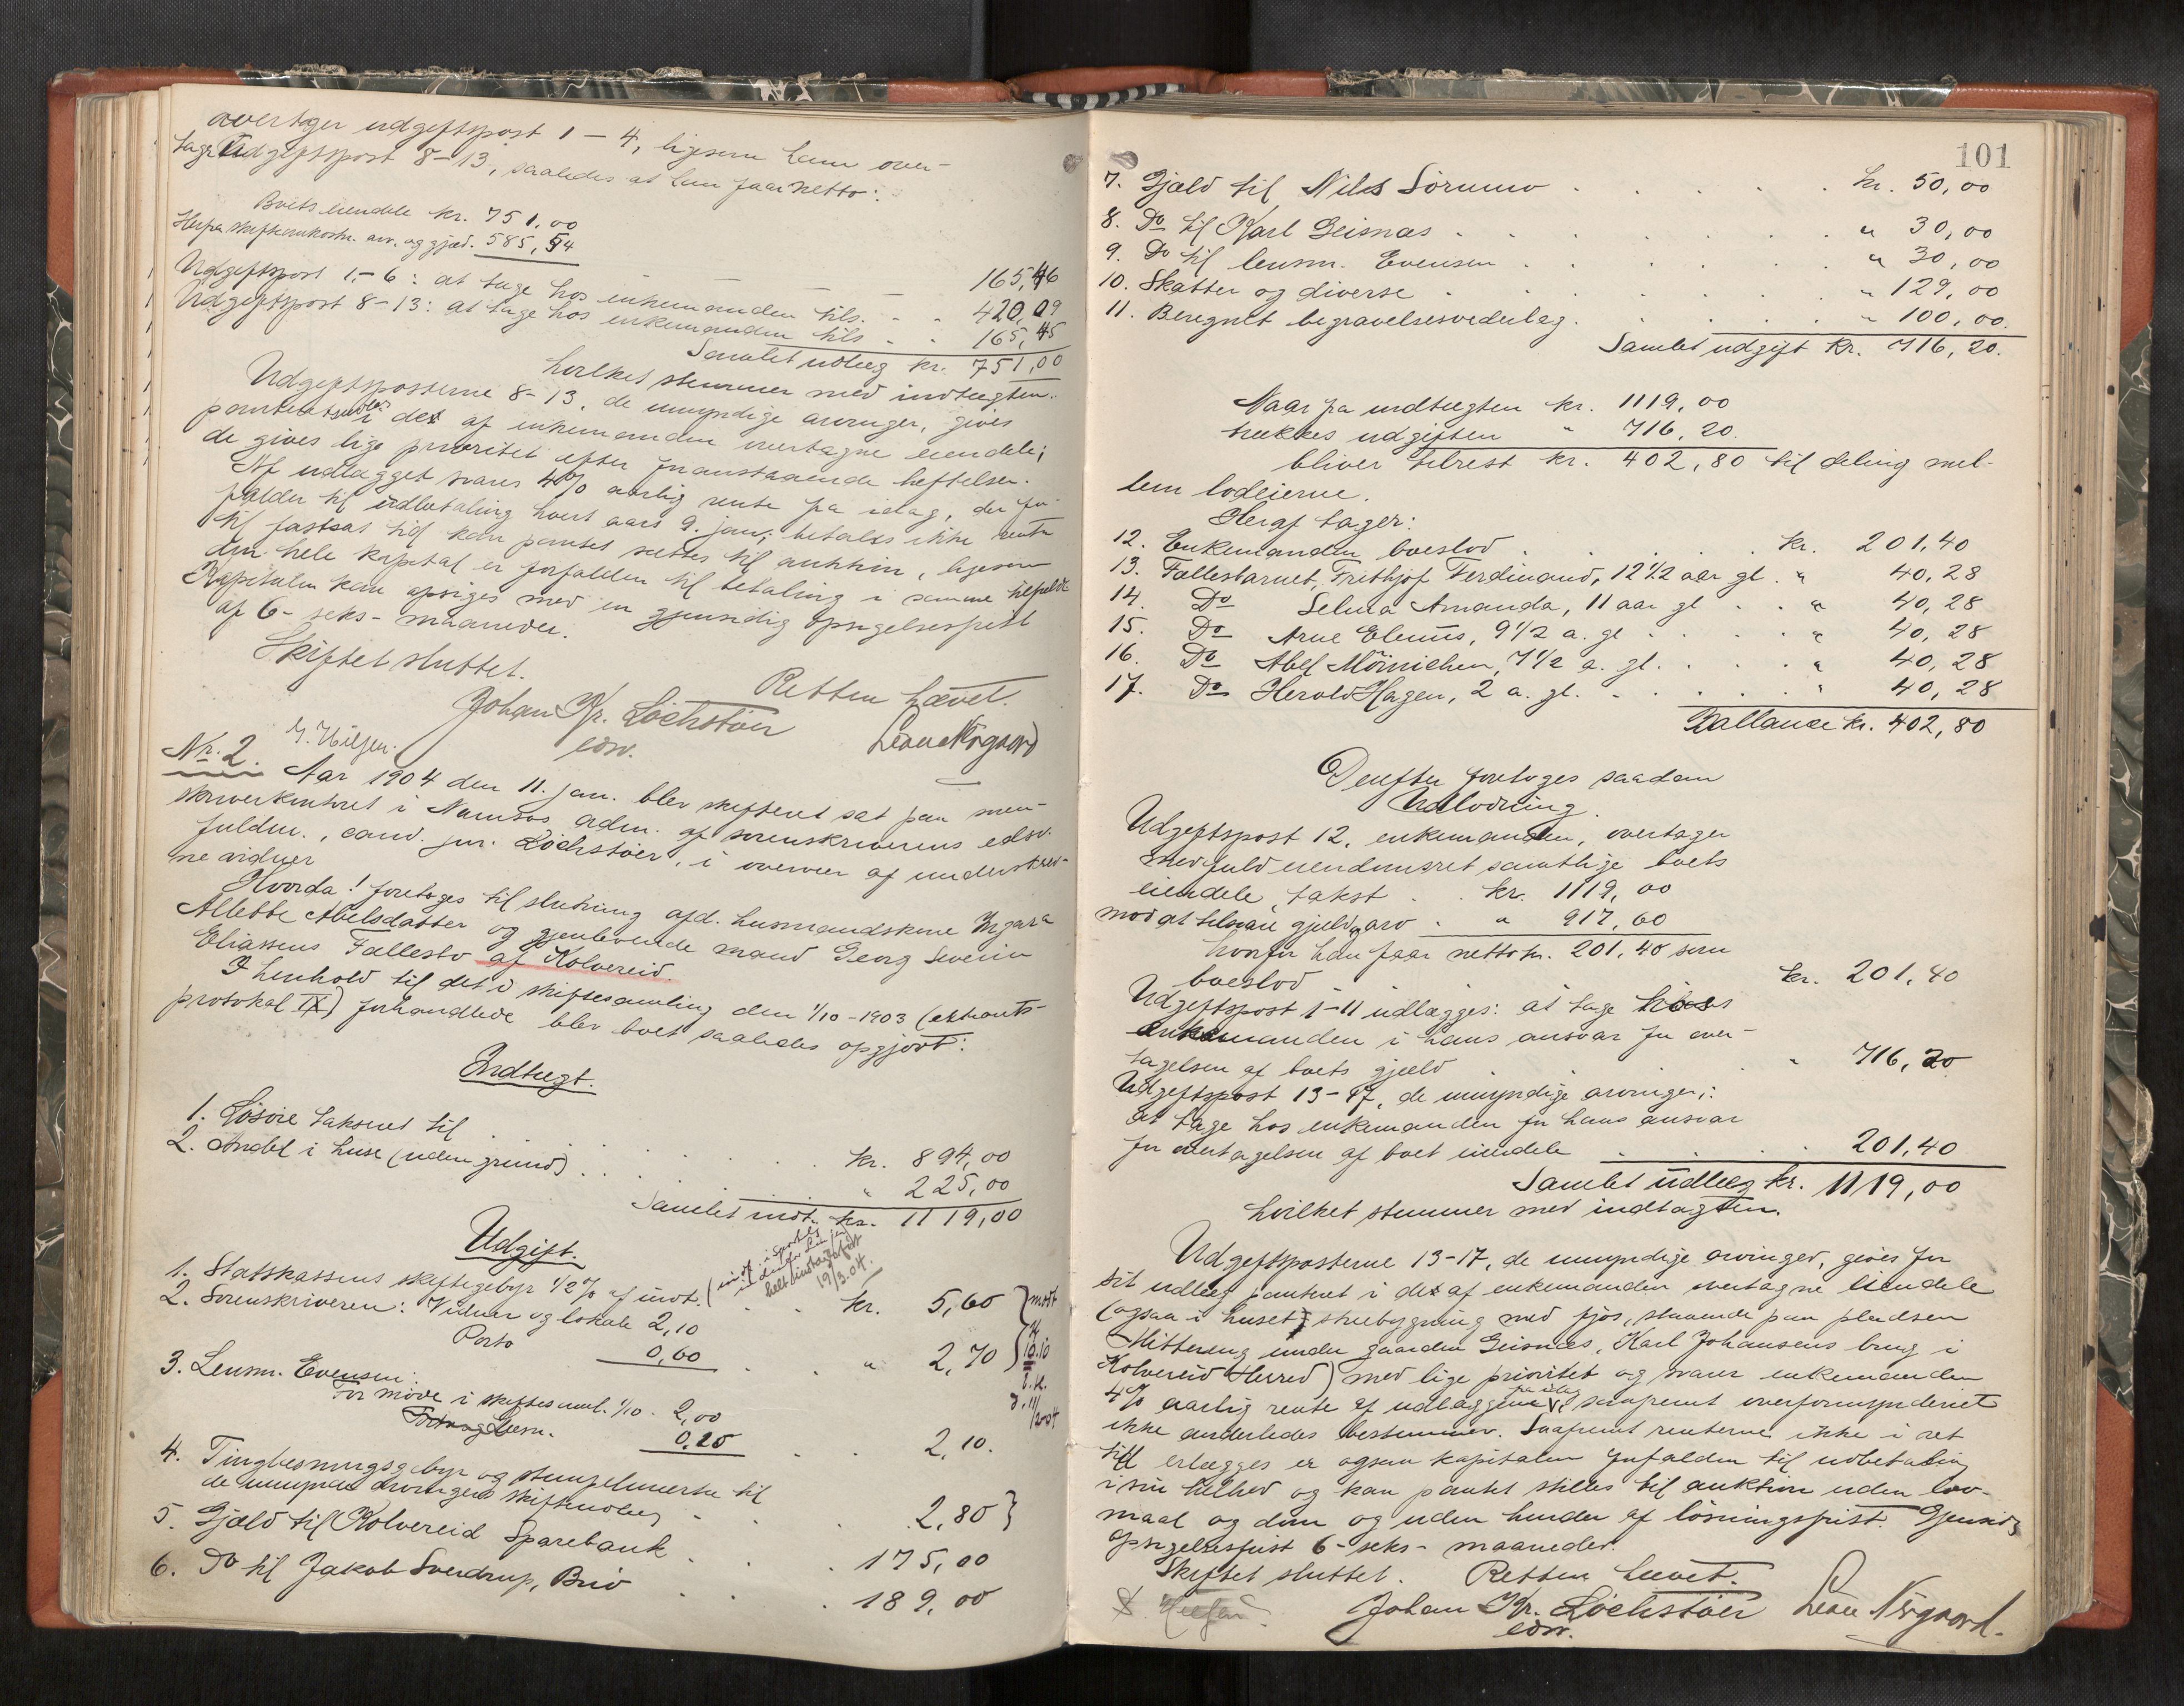 overtager udgiftspost 1 – 4, ligesom han over-
tager Udgiftspost 8–13, saaledes at han faar netto:
Boets eiendele kr. 751,00
Herfra skifteomkostn. arv. og gjæld. 585,54
165,46
Udgiftspost 1–6: at tage hos enkemanden tils. 420,09
Udgiftspost 8–13: at tage hos enkemanden tils 165,45
Samlet udlæg kr. 751,00
hvilket stemmer med indtægten.
Udgiftsposterne 8–13, de umyndige arvinger, gives
panteret i det af enkemanden overtagne eiendele;
de gives lige prioritet efter foranstaaende heftelser.
Af udlægget svares 4% aarlig rente fra idag, der for-
falder til indbetaling hvert aars 9. jan; betales ikke rente
til fastsat tid kan pantet sættes til auktion, ligesom
den hele kapital er forfalden til betaling i samme tilfælde
Kapitalen kan opsiges med en gjensidig opsigelsesfrist
af 6 - seks - maaneder.
Skiftet sluttet.
Retten hævet.
Johan Kr. Löchstöer
edsv.
Leau Nörgaard
Nr. 2. Aar 1904 den 11. jan. blev skifteret sat paa soren-
skriverkontoret i Namsos adm. af sorenskriverens edsv.
fuldm., cand. jur. Löchstöer, i overvær af underskrev-
ne vidner
Hvorda! foretoges til slutning afd. husmandskone Ingara
Allette Abelsdatter og gjenlevende mand Georg Severin
Eliassens Fællesbo af Kolvereid.
I henhold til det i skiftesamling den 1/10 - 1903 (ekstrarets-
protokol IX) forhandlede blev boet saaledes opgjort:
Indtægt.
1. Lösöre takseret til . . . kr. 894,00
2. Andel i huse (uden grund) . . . " 225,00
Samlet indt. kr. 1119,00
Udgift.
1. Statskassens skiftegebyr 1/2% af indt. kr. 5,60
2. Sorenskriveren: Vidner og lokale 2,10
Porto 0,60 " 2,70
3. Lensm. Evensen:
For möde i skiftesaml. 1/10. 2,00
0,10 2,10.
4. Tinglæsningsgebyr og stempelmerke til
de umyndige arvingers skifteudlæg 2,80
5. Gjæld til Kolvereid Sparebank . . . 175,00
6. Do til Jakob Sverdrup, Brio . . . 189,00
101
7. Gjæld til Nils Sörumo . . . kr. 50,00
8. Do til Karl Geisnæs . . . " 30,00
9. Do til lensm. Evensen . . . " 30,00
10. Skatter og diverse . . . " 129,00
11. Beregnet begravelsesvederlag . . . " 100,00.
Samlet udgift kr. 716,20.
Naar fra indtægten kr. 1119,00
trækkes udgiften " 716,20.
bliver tilrest kr. 402,80 til deling mel-
lem lodeierne.
Heraf tager:
12. Enkemanden boeslod . . . kr. 201,40
13. Fællesbarnet, Frithjof Ferdinand, 12 1/2 aar gl. " 40,28
14. Do Selma Amanda, 11 aar gl . . " 40,28
15. Do Arne Elenus, 9 1/2 a. gl . . . " 40,28
16. Do Abel Möinichen, 7 1/2 a. gl. . . . " 40,28
17. Do Herold Hagen, 2 a. gl. . . . " 40,28
Ballance kr. 402,80
Derefter foretoges saadan
Udlodning.
Udgiftspost 12, enkemanden, overtager
med fuld eiendomsret samtlige boets
eiendele, takst . . kr. 1119,00
mod at tilsvare gjæld og arv . " 917,60
hvorfor han faar netto kr. 201,40 som
boeslod kr. 201,40
Udgiftspost 1–11 udlægges: at tage hos
enkemanden i hans ansvar for over-
tagelsen af boets gjæld " 716,20
Udgiftspost 13–17, de umyndige arvinger,:
at tage hos enkemanden for hans ansvar
for overtagelsen af boet eiendele . . . 201,40
Samlet udlæg kr. 1119,00
hvilket stemmer med indtægten.
Udgiftsposterne 13–17, de umyndige arvinger, gives for
sit udlæg panteret i det af enkemanden overtagne eiendele
(ogsaa i huset; stuebygning med fjös, staaende paa pladsen
Mittereng under gaarden Geisnæs, Karl Johansens brug i
Kolvereid Herred) med lige prioritet og svarer enkemanden
4% aarlig rente af udlæggene fra idag saafremt overformynderiet
ikke anderledes bestemmer. Saafremt renterne ikke i ret
tid erlægges er ogsaa kapitalen forfalden til udbetaling
i sin helhed og kan pantet stilles til auktion uden lov-
maal og dom og uden hinder af lösningsfrist. Gjensidig
opsigelsesfrist 6 - seks - maaneder.
Skiftet sluttet. Retten hævet.
Johan Kr. Löchstöer
edsv.
Leau Nörgaard.